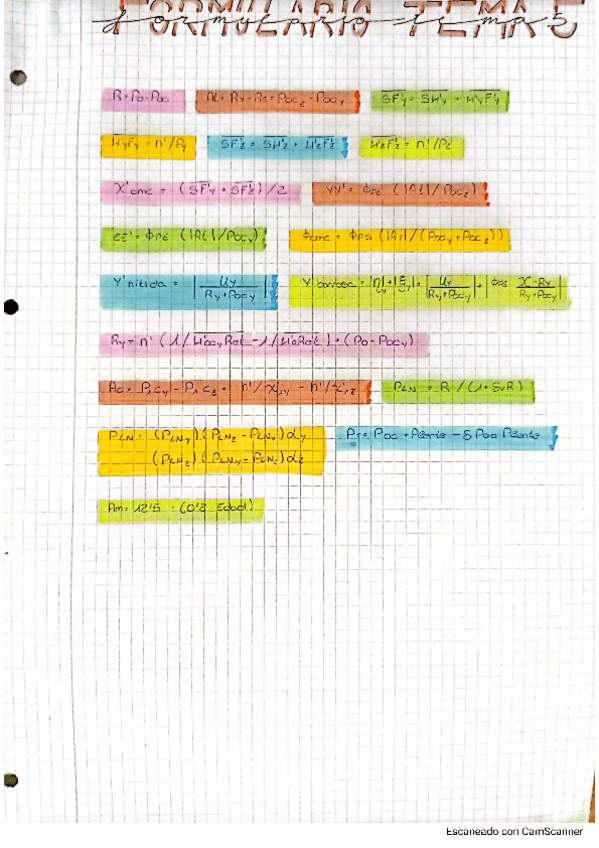 FORMULARIO TEMA 5
formulario tema 5
R = Po - Poc   At = Ry - Rz = Pocz - Pocy   SF'y = SH'y + H'yF'y
H'yF'y = n'/Py   SF'z = SH'z + H'zF'z   H'zF'z = n'/Pz
X'cmc = (SF'y + SF'z)/2   YY' = ΦPE (|At|/Pocz)
ZZ' = ΦPE (|At|/Pocy)   Φcmc = ΦPE (|At|/(Pocy + Pocz))
Y'nítida = | Uy / Ry + Pocy |   Y'borrosa = |η'y| + |ξ'y| = | Uy / Ry + Pocy | + | ΦPE X - Ry / Ry + Pocy |
Ry = n' (1/H'ocyRet - 1/H'oRet) + (Po - Pocy)
Ac = P1cy - P1cz = n'/x'1y - n'/x'1z   PLN = R / (1 + δvR)
PLN = (PLNy) (PLNz - PLNy) αy
(PLNz) (PLNy - PLNz) αz
PT = Poc + Plente - δ Poc Plente
Am = 12'5 - (0'2 Edad)
Escaneado con CamScanner